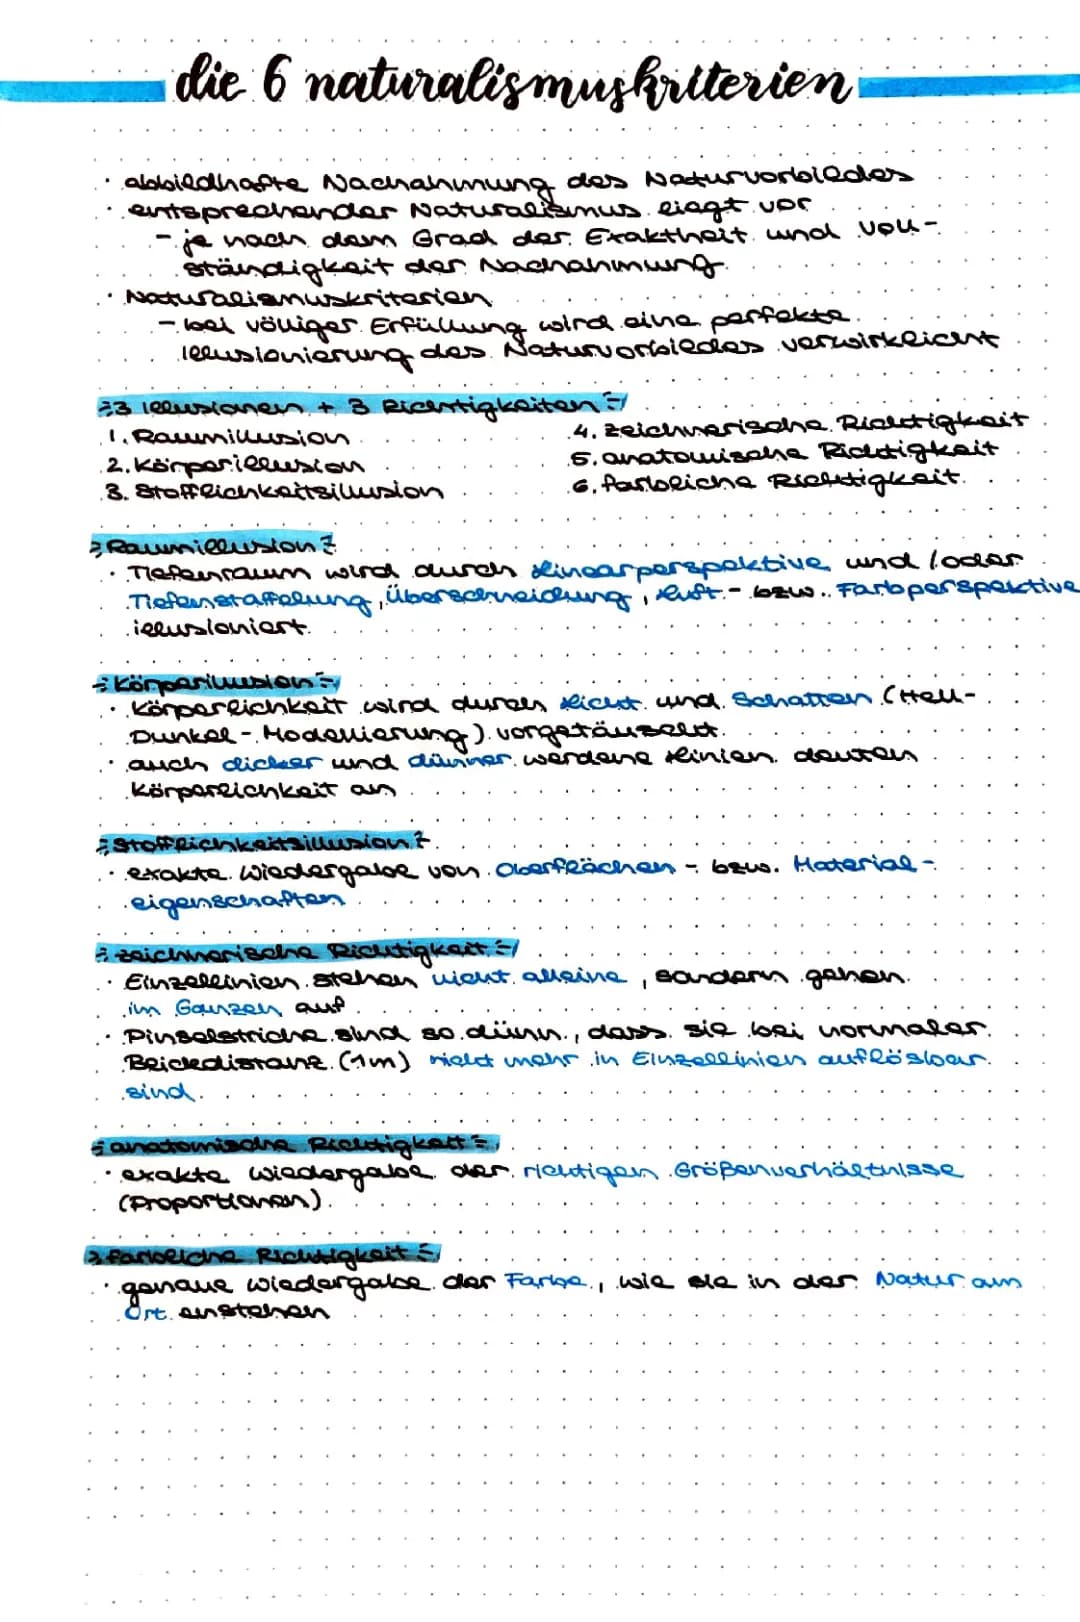 die 6 naturalismuskriterien
· abbildhafte Nachahmung des Naturvorbildes
· entsprechender Naturalismus liegt vor
- je nach dem Grad der Exaktheit und voll-
ständigkeit der Nachahmung
· Naturalismuskriterien
- bei völliger Erfüllung wird eine perfekte
illusionierung des Naturvorbildes verwirklicht
3 illusionen + 3 Richtigkeiten
1. Raumillusion
2. Körperillusion
3. Stofflichkeitsillusion
4. zeichnerische Richtigkeit
5. anatomische Richtigkeit
6. farbliche Richtigkeit
Raumillusion
· Tiefenraum wird durch Linearperspektive und / oder
Tiefenstaffelung, Überschneidung, Luft- bzw. Farbperspektive
illusioniert
Körperillusion
· Körperlichkeit wird durch Licht und Schatten (Hell-
Dunkel-Modellierung) vorgetäuscht
· auch dicker und dünner werdene Linien deuten
Körperlichkeit an
Stofflichkeitsillusion
· exakte Wiedergabe von Oberflächen- bzw. Material-
eigenschaften
zeichnerische Richtigkeit
· Einzellinien stehen nicht alleine, sondern gehen
im Ganzen auf
· Pinselstriche sind so dünn, dass sie bei normaler
Blickdistanz (1m) nicht mehr in Einzellinien auflösbar
sind.
anatomische Richtigkeit
· exakte Wiedergabe der richtigen Größenverhältnisse
(Proportionen)
farbliche Richtigkeit
· genaue Wiedergabe der Farbe, wie sie in der Natur am
Ort enstehen